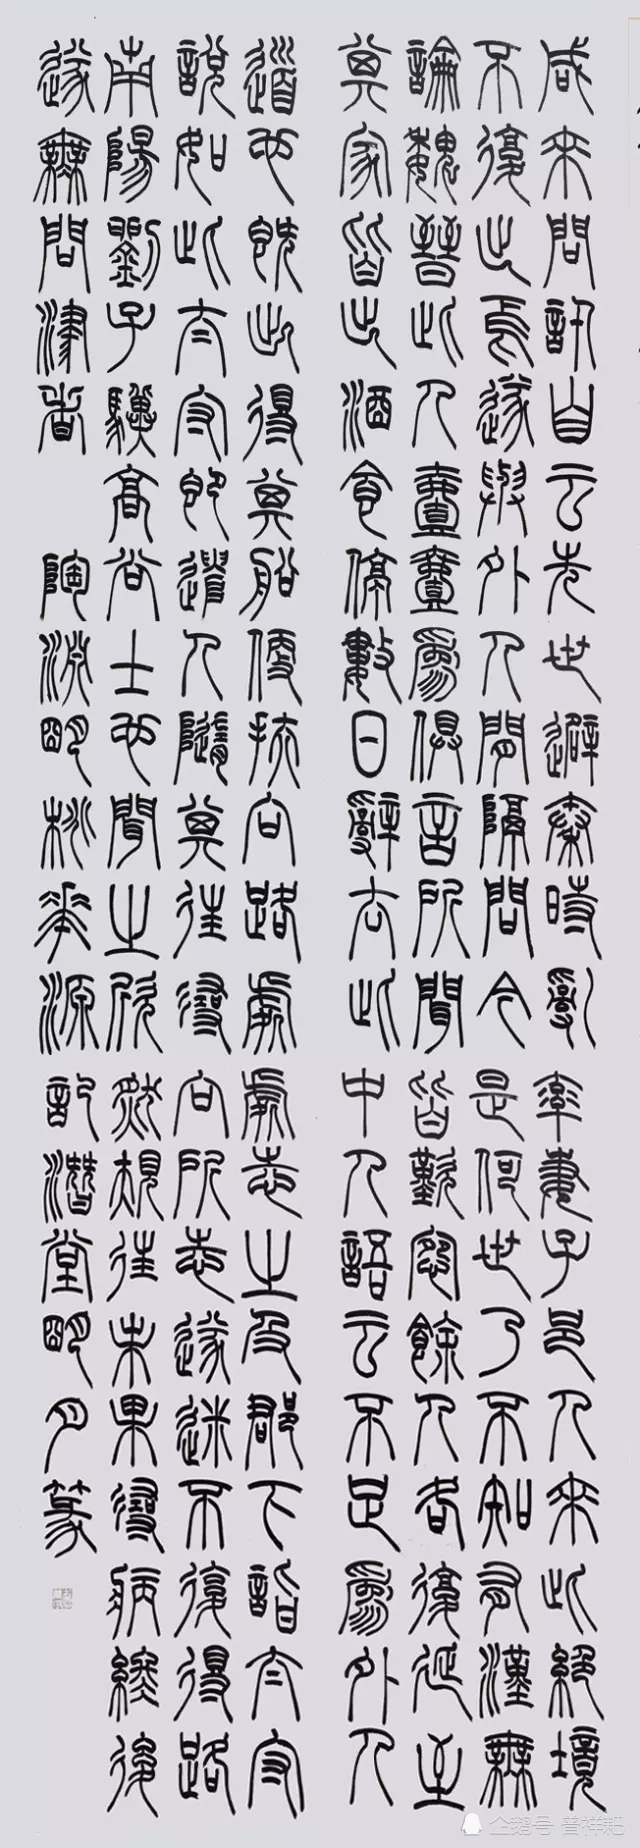 咸來問訊自云先世避秦時亂率妻子邑人來此絕境
不復出焉遂與外人間隔問今是何世乃不知有漢無
論魏晉此人壹壹為俱言所聞皆歎惋餘人各復延至
其家皆出酒食停數日辭去此中人語云不足為外人
道也既出得其船便扶向路處處志之及郡下詣太守
說如此太守即遣人隨其往尋向所志遂迷不復得路
南陽劉子驥高尚士也聞之欣然規往未果尋病終後
遂無問津者 陶淵明桃華源記潛堂明月篆
企鹅号 普祥耙